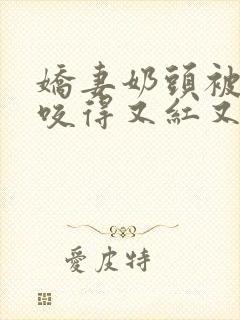 嬌妻奶頭被
咬得又紅又
愛皮特